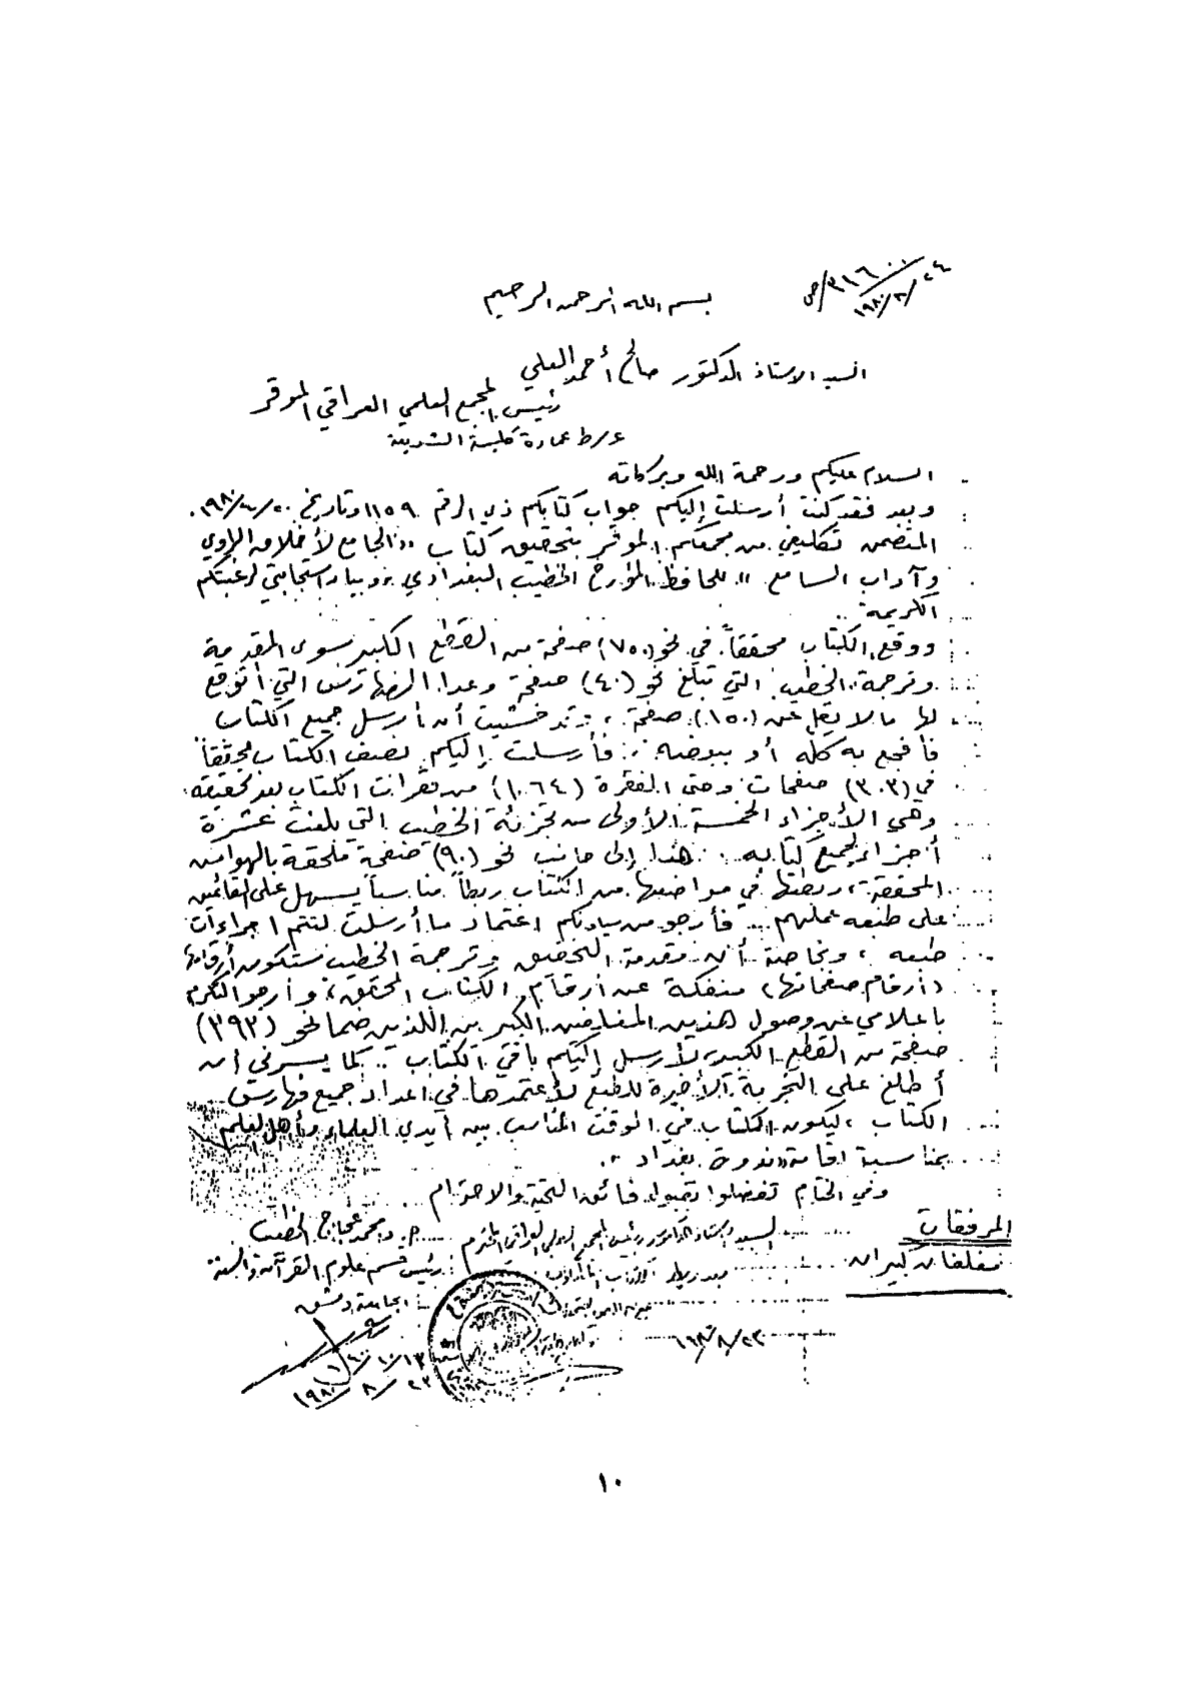 ٣١٦٠٠/ص
٢٤/٨/١٩٨٠
بسم الله الرحمن الرحيم
السيد الاستاذ الدكتور صالح أحمد العلي
رئيس المجمع العلمي العراقي الموقر
عرط عمادة كلية الشريعة
السلام عليكم ورحمة الله وبركاته
وبعد فقد كنت أرسلت إليكم جواب كتابكم ذي الرقم ١١٥٩ وتاريخ
المتضمن تكليفي من مجمعكم الموقر بتحقيق كتاب "الجامع لأخلاق الراوي
وآداب السامع" للحافظ المؤرخ الخطيب البغدادي وبيان استجابتي لرغبتكم
الكريمة.
ووقع الكتاب محققاً في نحو (٧٥٠) صفحة من القطع الكبير سوى المقدمة
وترجمة الخطيب التي تبلغ نحو (٤٠) صفحة وعدا الفهارس التي أتوقع
لها ما لا يقل عن (١٥٠) صفحة، وقد خشيت أن أرسل جميع الكتاب
فأفجع به كله أو ببعضه.. فأرسلت إليكم نصف الكتاب محققاً
في (٣٠٣) صفحات وحتى الفقرة (١٠٦٤) من فقرات الكتاب بعد تحقيقه
وهي الأجزاء الخمسة الأولى من تجزئة الخطيب التي بلغت عشرة
أجزاء لجميع كتابه.. هذا إلى جانب نحو (٩٠) صفحة ملحقة بالهوامش
المحققة، ربطتها في مواضعها من الكتاب ربطاً مناسباً يسهل على القائمين
على طبعه عملهم... فأرجو من سيادتكم اعتماد ما أرسلت لتتم اجراءات
طبعه، وبخاصة أن مقدمة التحقيق وترجمة الخطيب ستكون أرقامها
(أرقام صفحاتها) منفكة عن أرقام الكتاب المحقق، وأرجو التكرم
باعلامي عن وصول هذين المغلفين الكبيرين اللذين ضما نحو (٣٩٣)
صفحة من القطع الكبير، لأرسل إليكم باقي الكتاب.. كما يسرني أن
أطلع على التجربة الأخيرة للطبع لأعتمدها في اعداد جميع فهارس
الكتاب، ليكون الكتاب في الوقت المناسب بين أيدي العلماء وأهل العلم
بمناسبة اقامة "ندوة بغداد".
وفي الختام تفضلوا بقبول فائق التحية والاحترام
المرفقات
مغلفان كبيران
د. محمد عجاج الخطيب
رئيس قسم علوم القرآن والسنة
بجامعة دمشق
٢٣/٨/١٩٨٠
١٠